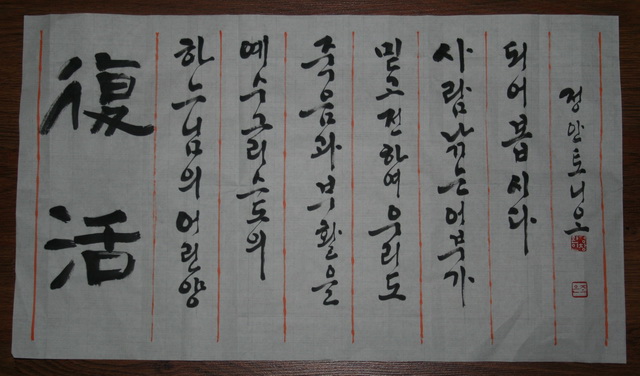 復活
하느님의 어린양
예수그리스도의
죽음과 부활을
믿고 전하여 우리도
사람낚는 어부가
되어봅시다
정안토니오